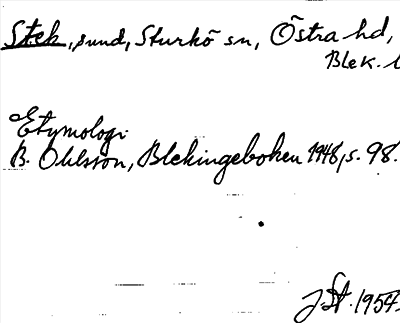 Stek, sund, Sturkö sn, Östra hd,
Blek. l
Etymologi
B. Ohlsson, Blekingeboken 1948, s. 98.
J.St. 1954.